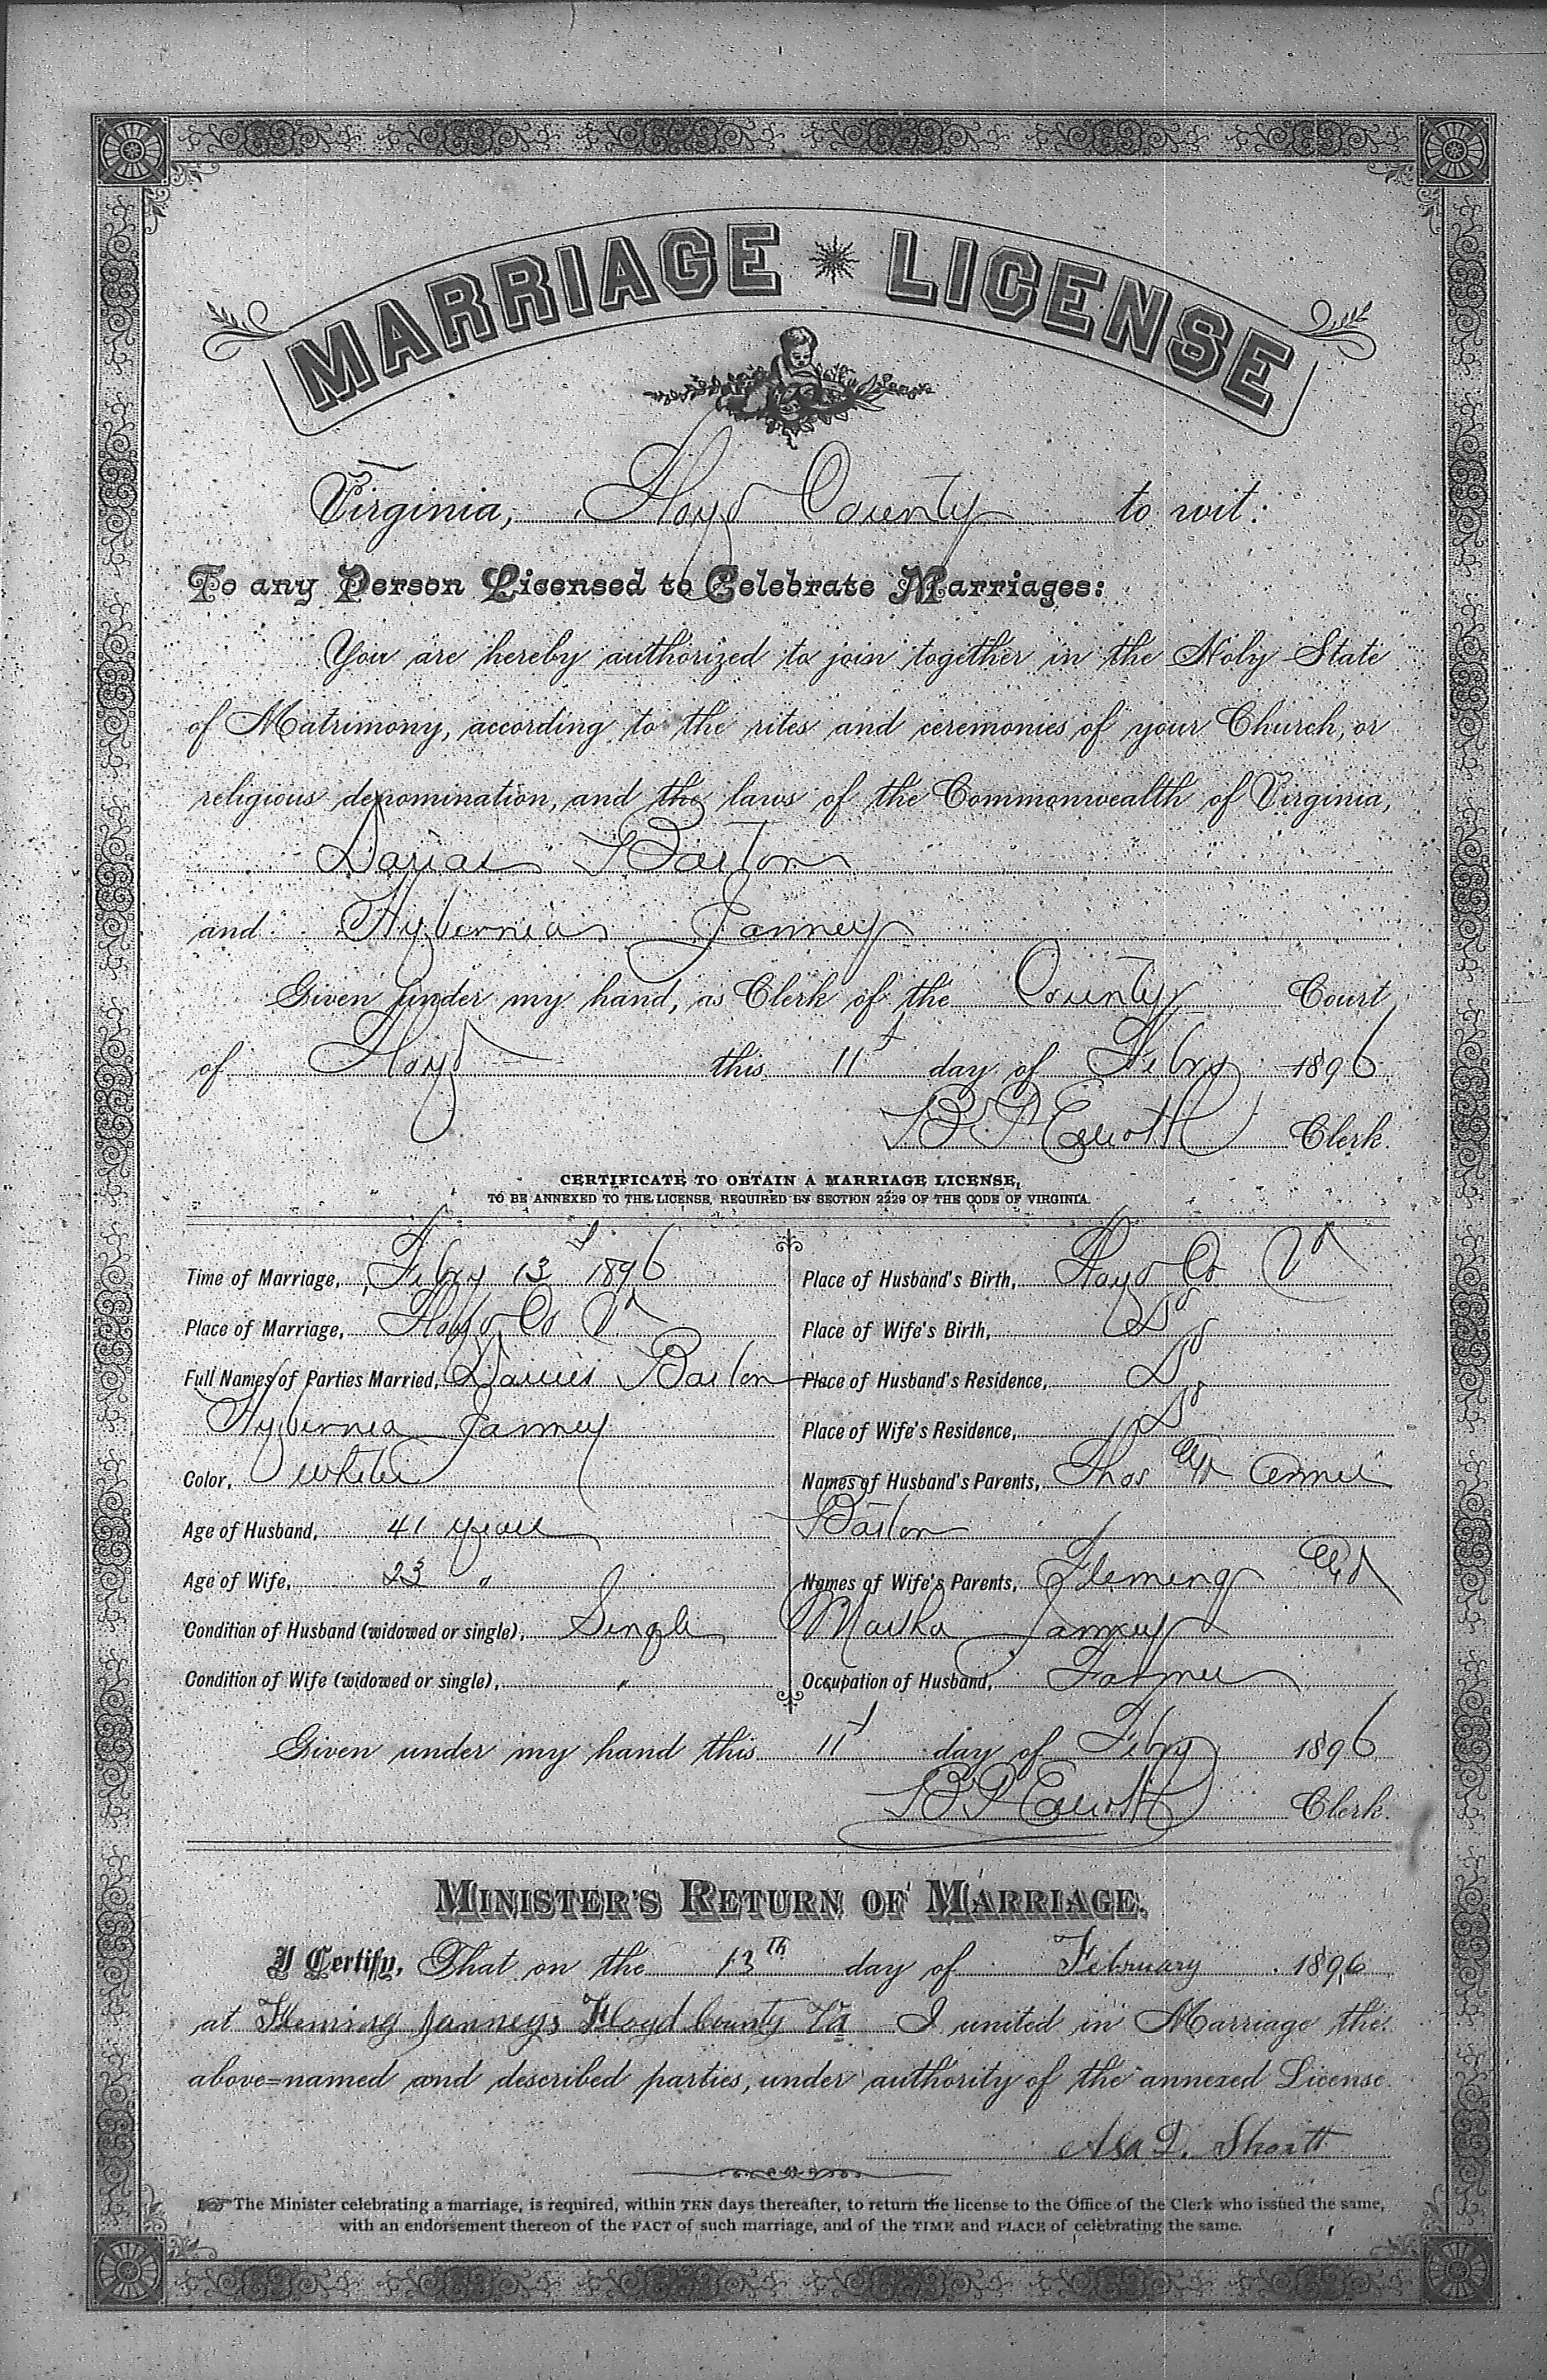 MARRIAGE LICENSE
Virginia, Floyd County to wit:
To any Person Licensed to Celebrate Marriages:
You are hereby authorized to join together in the Holy State
of Matrimony, according to the rites and ceremonies of your Church, or
religious denomination, and the laws of the Commonwealth of Virginia,
Darias Barton
and Hybernia Janney
Given under my hand, as Clerk of the County Court
of Floyd this 11t day of Febry 1896
Clerk.
CERTIFICATE TO OBTAIN A MARRIAGE LICENSE,
TO BE ANNEXED TO THE LICENSE, REQUIRED BY SECTION 2229 OF THE CODE OF VIRGINIA.
Time of Marriage, Febry 13 1896
Place of Marriage, Floyd Co Va
Full Names of Parties Married, Darius Barton
Hybernia Janney
Color, White
Age of Husband, 41 years
Age of Wife, 23 "
Condition of Husband (widowed or single), Single
Condition of Wife (widowed or single), "
Place of Husband's Birth, Floyd Co Va
Place of Wife's Birth, Do
Place of Husband's Residence, Do
Place of Wife's Residence, Do
Names of Husband's Parents, Thos and Annie
Barton
Names of Wife's Parents, Fleming and
Martha Janney
Occupation of Husband, Farmer
Given under my hand this 11t day of Febry 1896
Clerk.
MINISTER'S RETURN OF MARRIAGE.
I Certify, That on the 13th day of February 1896
at Fleming Janneys Floyd County Va I united in Marriage the
above-named and described parties, under authority of the annexed License.
Asa D. Shortt
The Minister celebrating a marriage, is required, within TEN days thereafter, to return the license to the Office of the Clerk who issued the same,
with an endorsement thereon of the FACT of such marriage, and of the TIME and PLACE of celebrating the same.